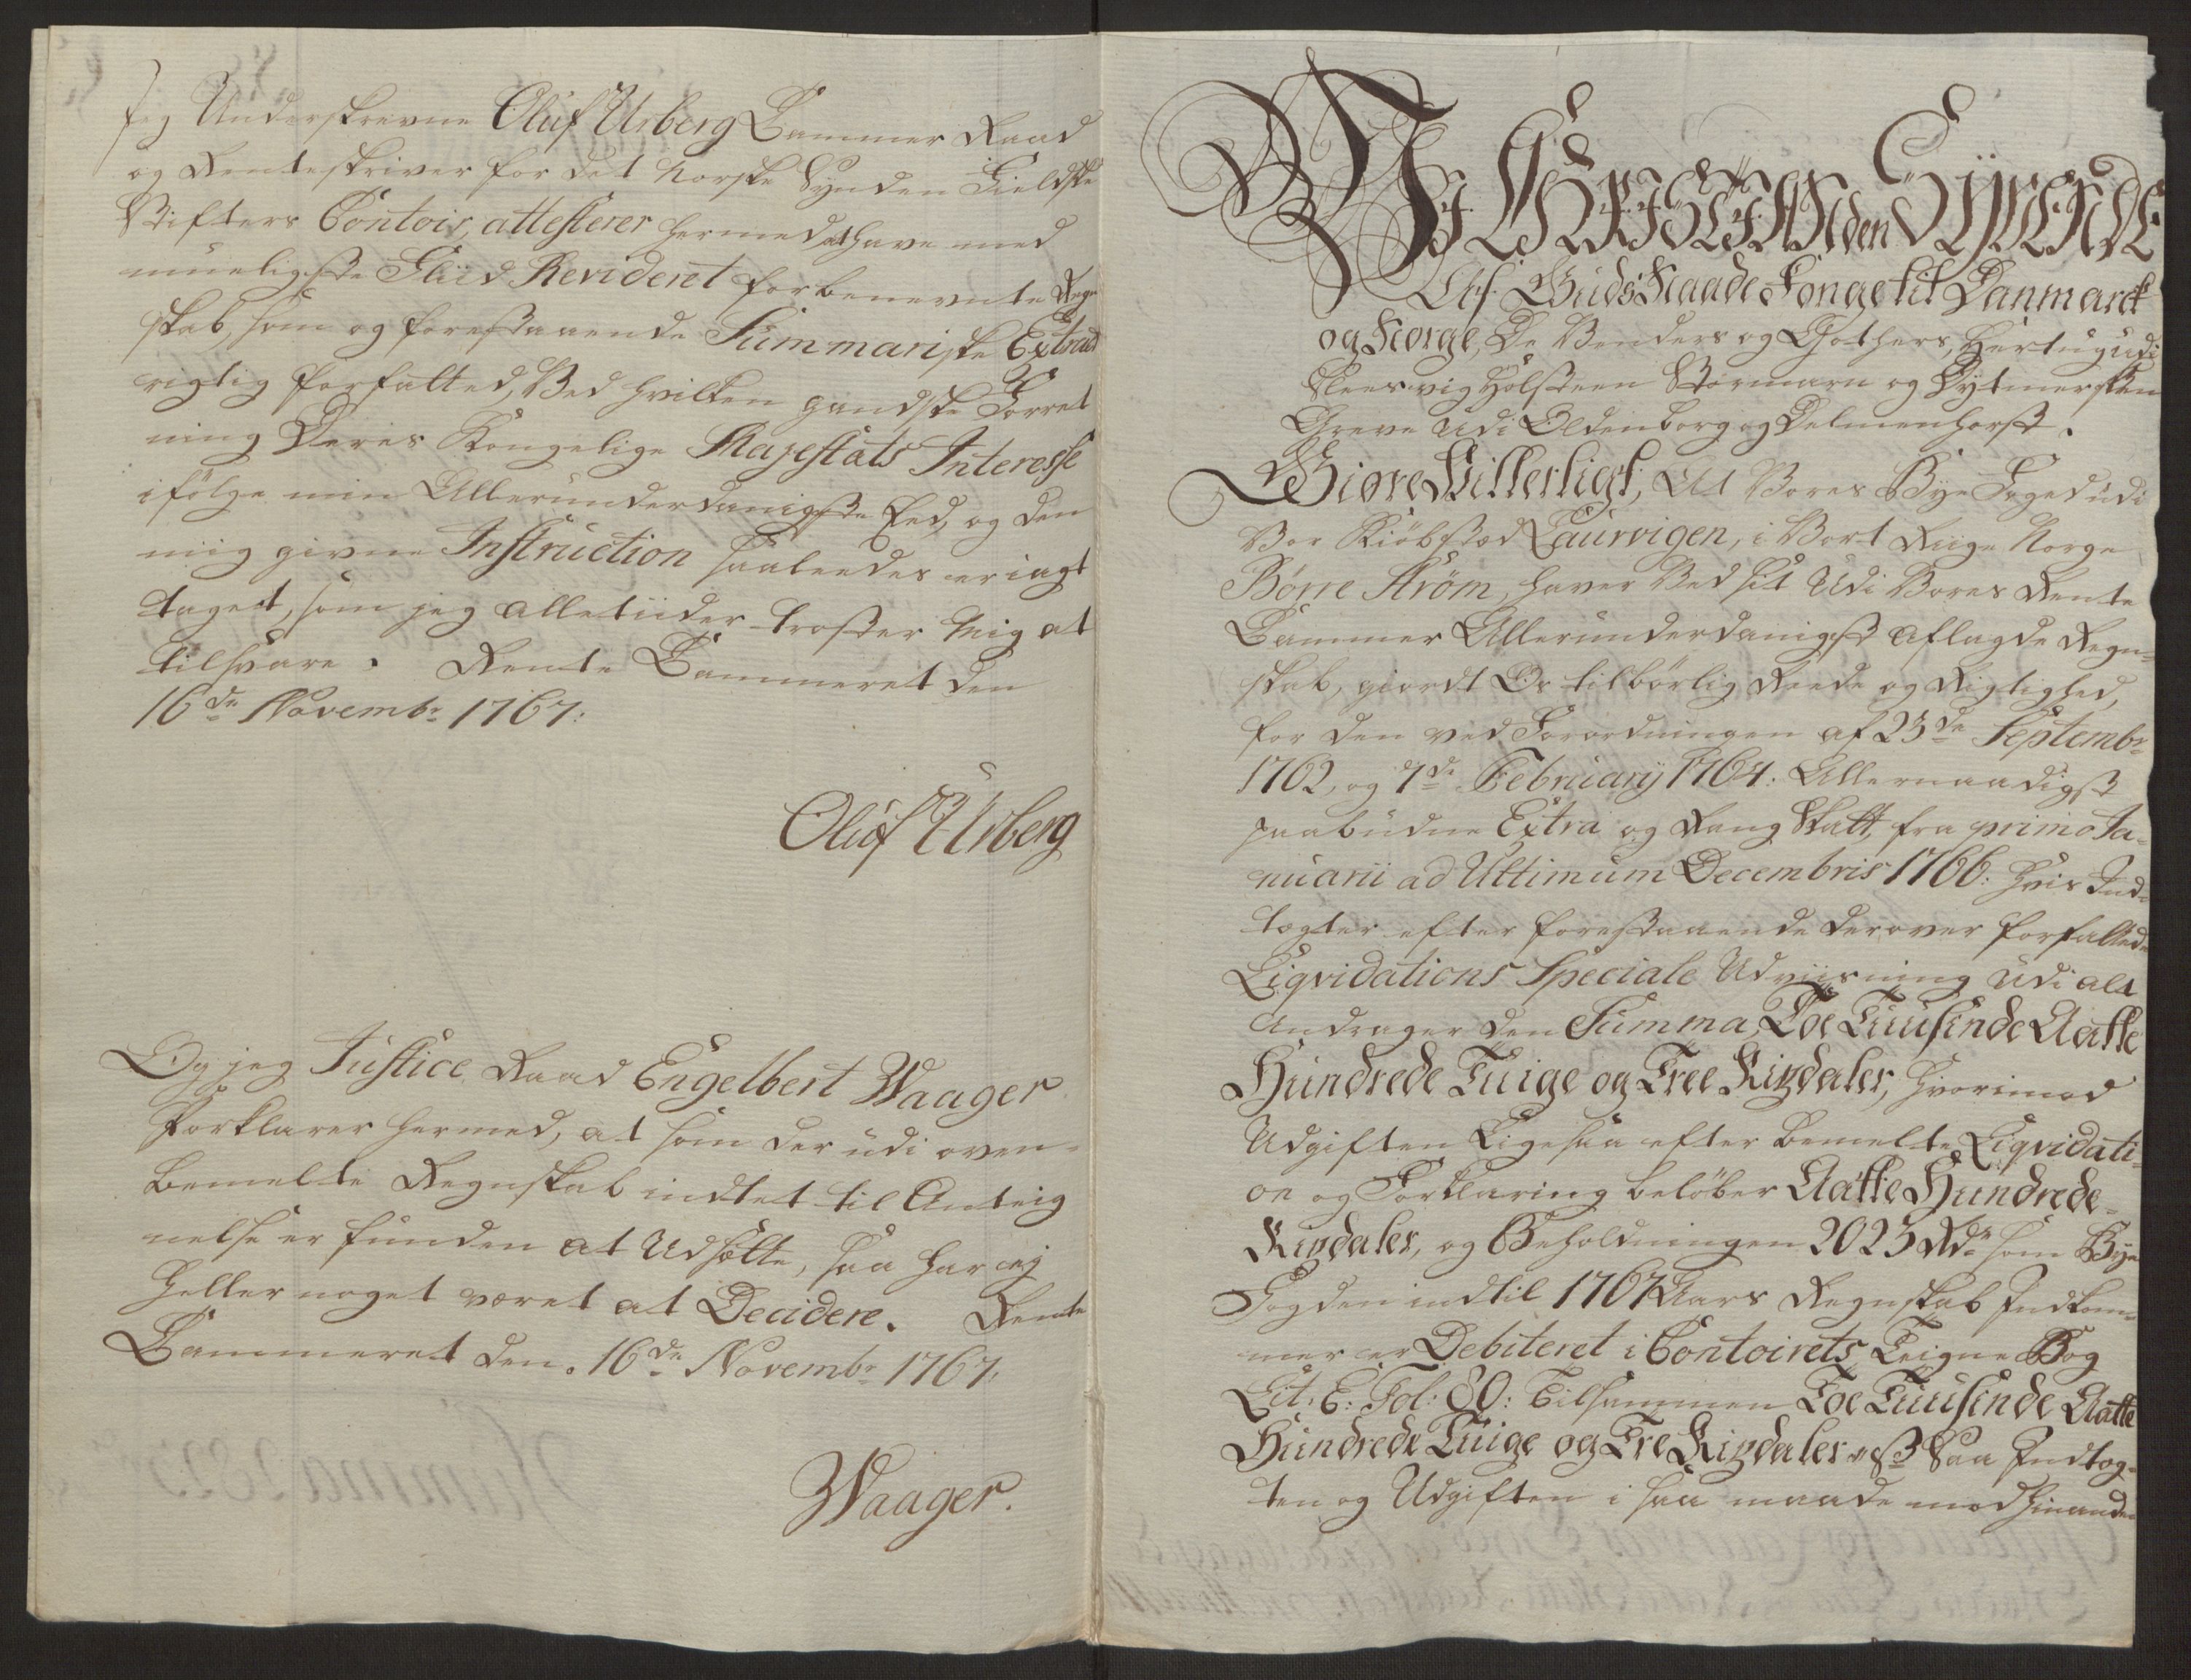 Jeg Underskrevne Oluf Urberg Cammer Raad
og Renteskriver for det Norske Synden Fieldske
Stifters Contoir, attesterer hermed at have med
mueligste Fliid Revideret forbenevnte Regn
skab, som og forestaaende Summariske Extract
rigtig forfatted, Ved hvilken gandske Forret
ning Deres Kongelige Majestæts Interesse
ifölge min Allerunderdanigste Eed, og den
mig givne Instruction saaleedes er iagt
taget, som jeg alletiider tröster Mig at
tilsvare. Rente Cammeret den
16de Novembr 1767.
Oluf Urberg
Og jeg Justice Raad Engelbert Waager
forklarer hermed, at som der udi oven-
bemelte Regnskab indtet til Anteig
nelse er funden at Udsætte, saa har ey
heller noget været at Decidere. Rente
Cammeret den. 16de Novembr 1767.
Waager.
Vi CHRISTIAN den SYVENDE
Af Guds Naade Konge til Danmarck
og Norge, De Venders og Gothers, Hertug udi
Sleesvig Holsteen Stormarn og Dytmersken
Greve Udi Oldenborg og Delmenhorst.
Giöre Vitterligt, At Vores Bye Foged udi
Vor Kiöbsted Laurvigen, i Vort Riige Norge
Börre Ström, haver Ved sit Udi Vores Rente
Cammer Allerunderdanigst aflagde Regn-
skab, giordt Os tilbörlig Reede og Rigtighed,
for den ved Forordningen af 23de Septembr
1762, og 7de February 1764. Allernaadigst
paabudne Extra og Rang Skatt, fra primo Ja-
nuarii ad Ultimum Decembris 1766. Hvis Ind-
tægter efter forestaaende derover forfattede
Liqvidations Speciale Udviisning udi alt
Andrager den Summa Toe Tuusinde Aatte
Hundrede Tiuge og Tree Rixdaler, hvorimod
Udgiften Ligesaa efter bemelte Liqvidati-
on og Forklaring belöber Aatte Hundrede-
Rixdaler, og Beholdningen 2023 Rdr som Bye
Fogden indtil 1767 Aars Regnskab Indkom-
mer er Debiteret i Contoirets Teigne Bog
Lit: E: Fol: 80: Tilsammen Toe Tuusinde Aatte
Hundrede Tiuge og Tre Rixdaler Saa Indtæg-
ten og Udgiften i saa maade mod hinanden